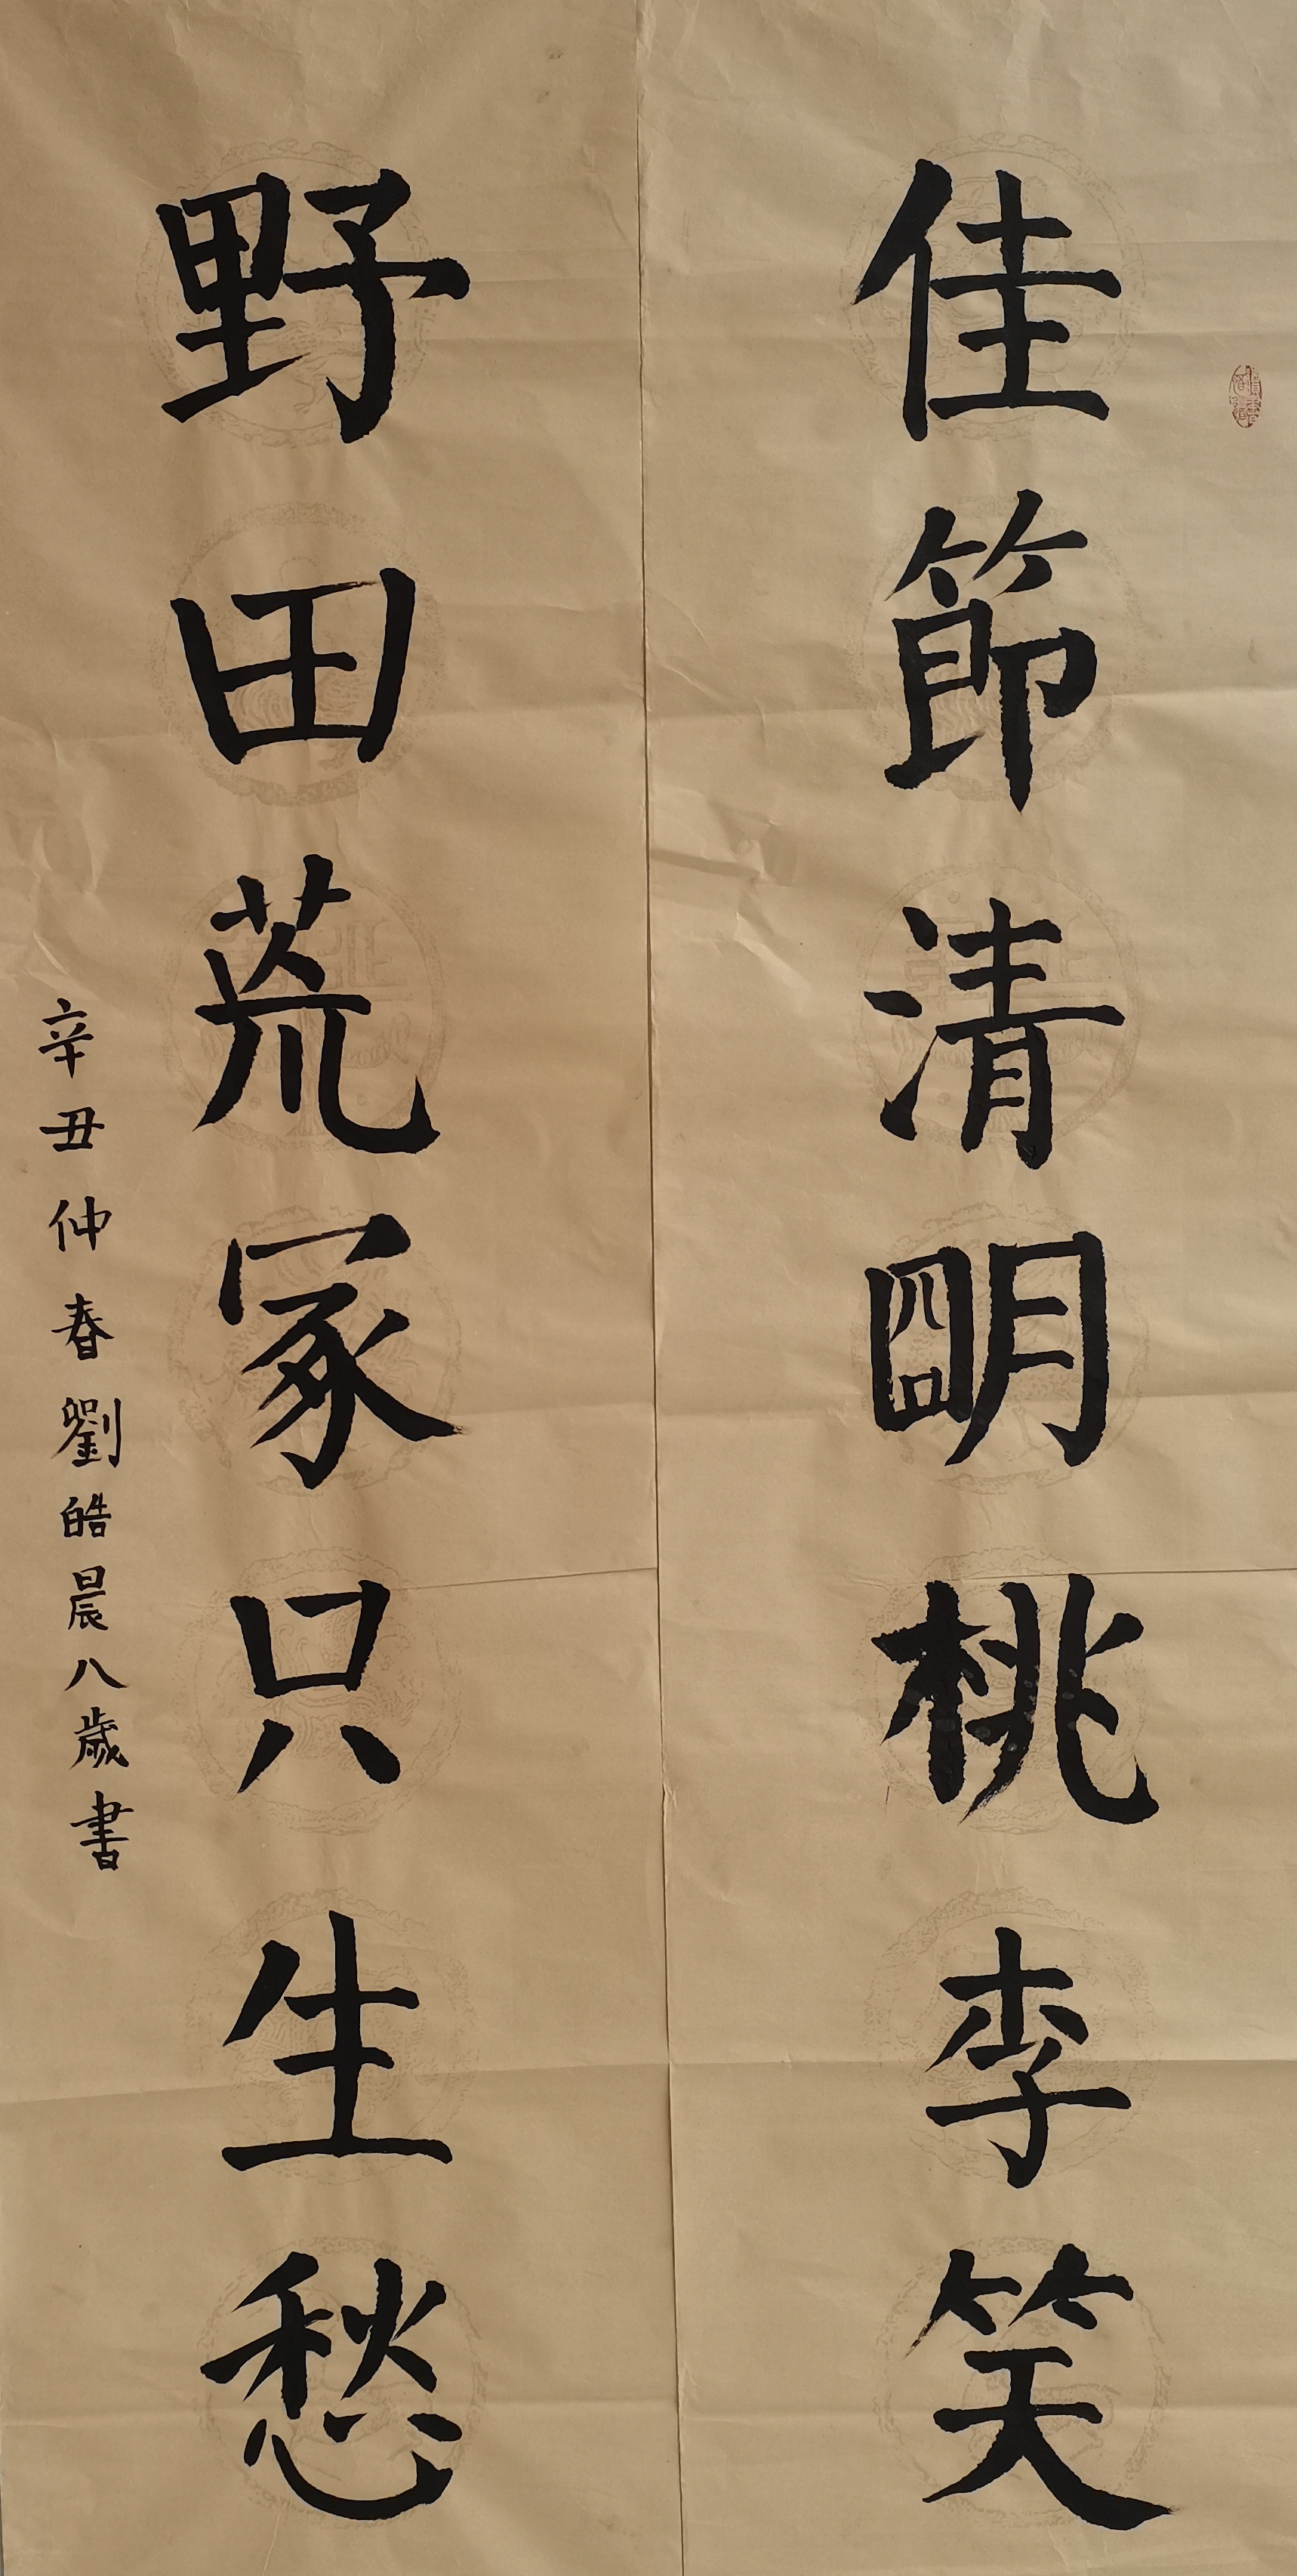 佳節清明桃李笑
野田荒冢只生愁
辛丑仲春劉皓晨八歲書